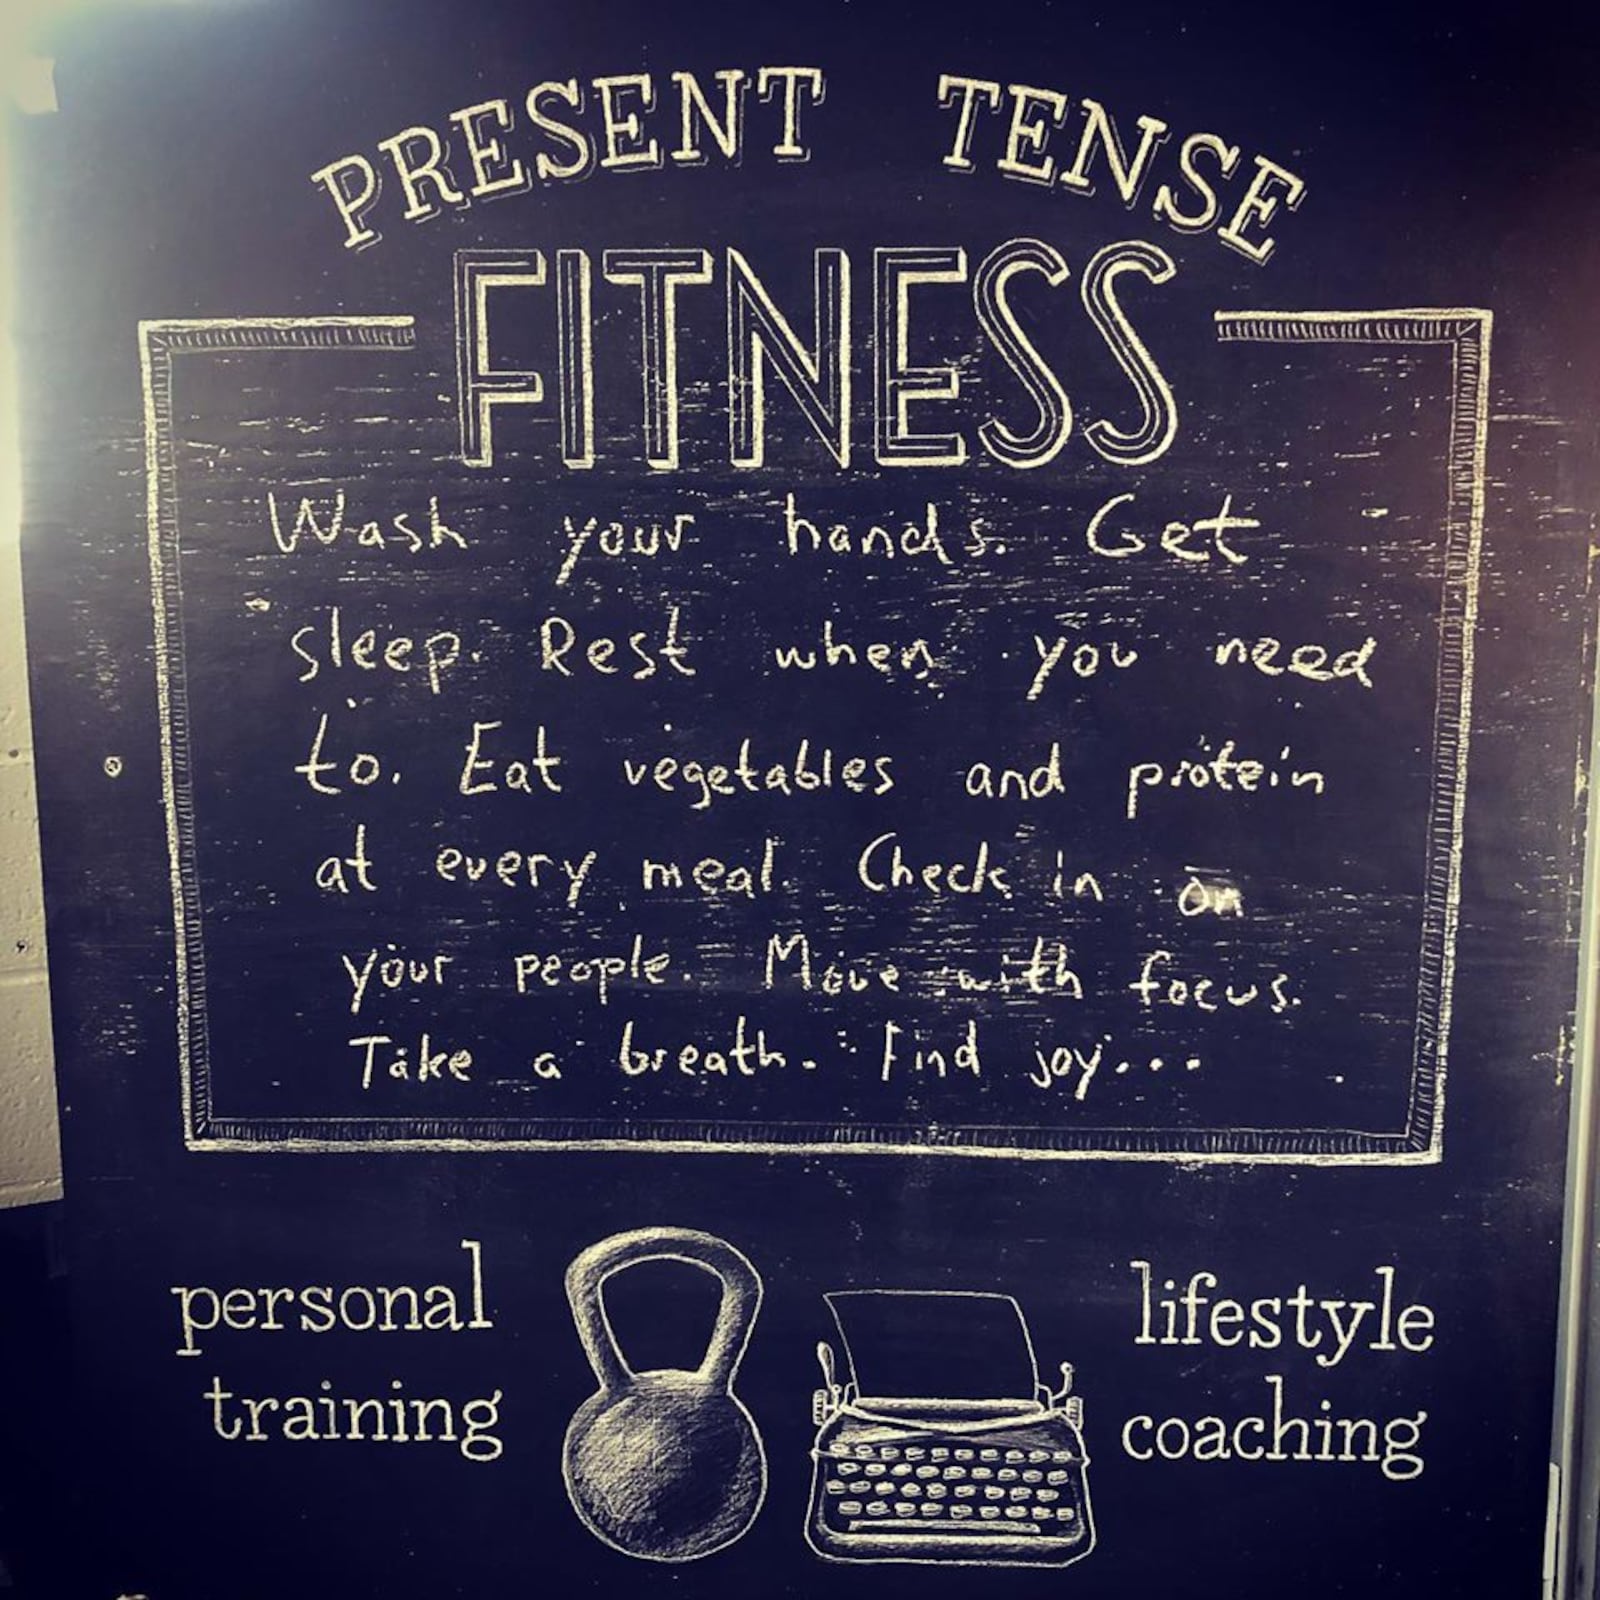 PRESENT TENSE
FITNESS
Wash your hands. Get
sleep. Rest when you need
to. Eat vegetables and protein
at every meal. Check in on
your people. Move with focus.
Take a breath. Find joy...
personal
training
lifestyle
coaching